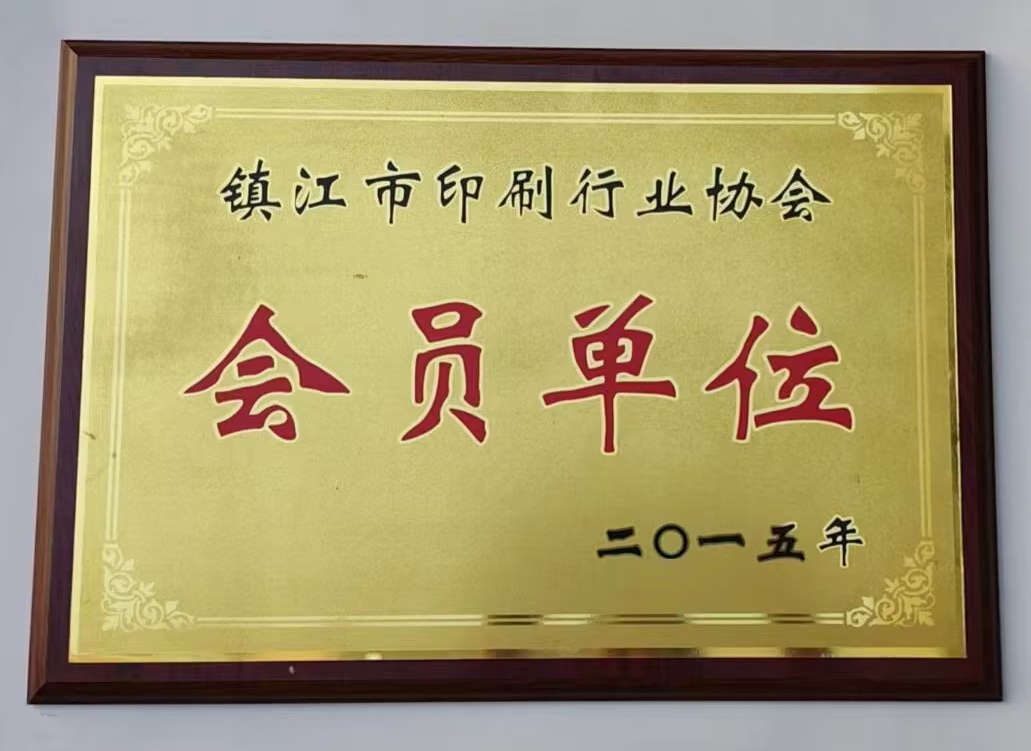 镇江市印刷行业协会
会员单位
二〇一五年